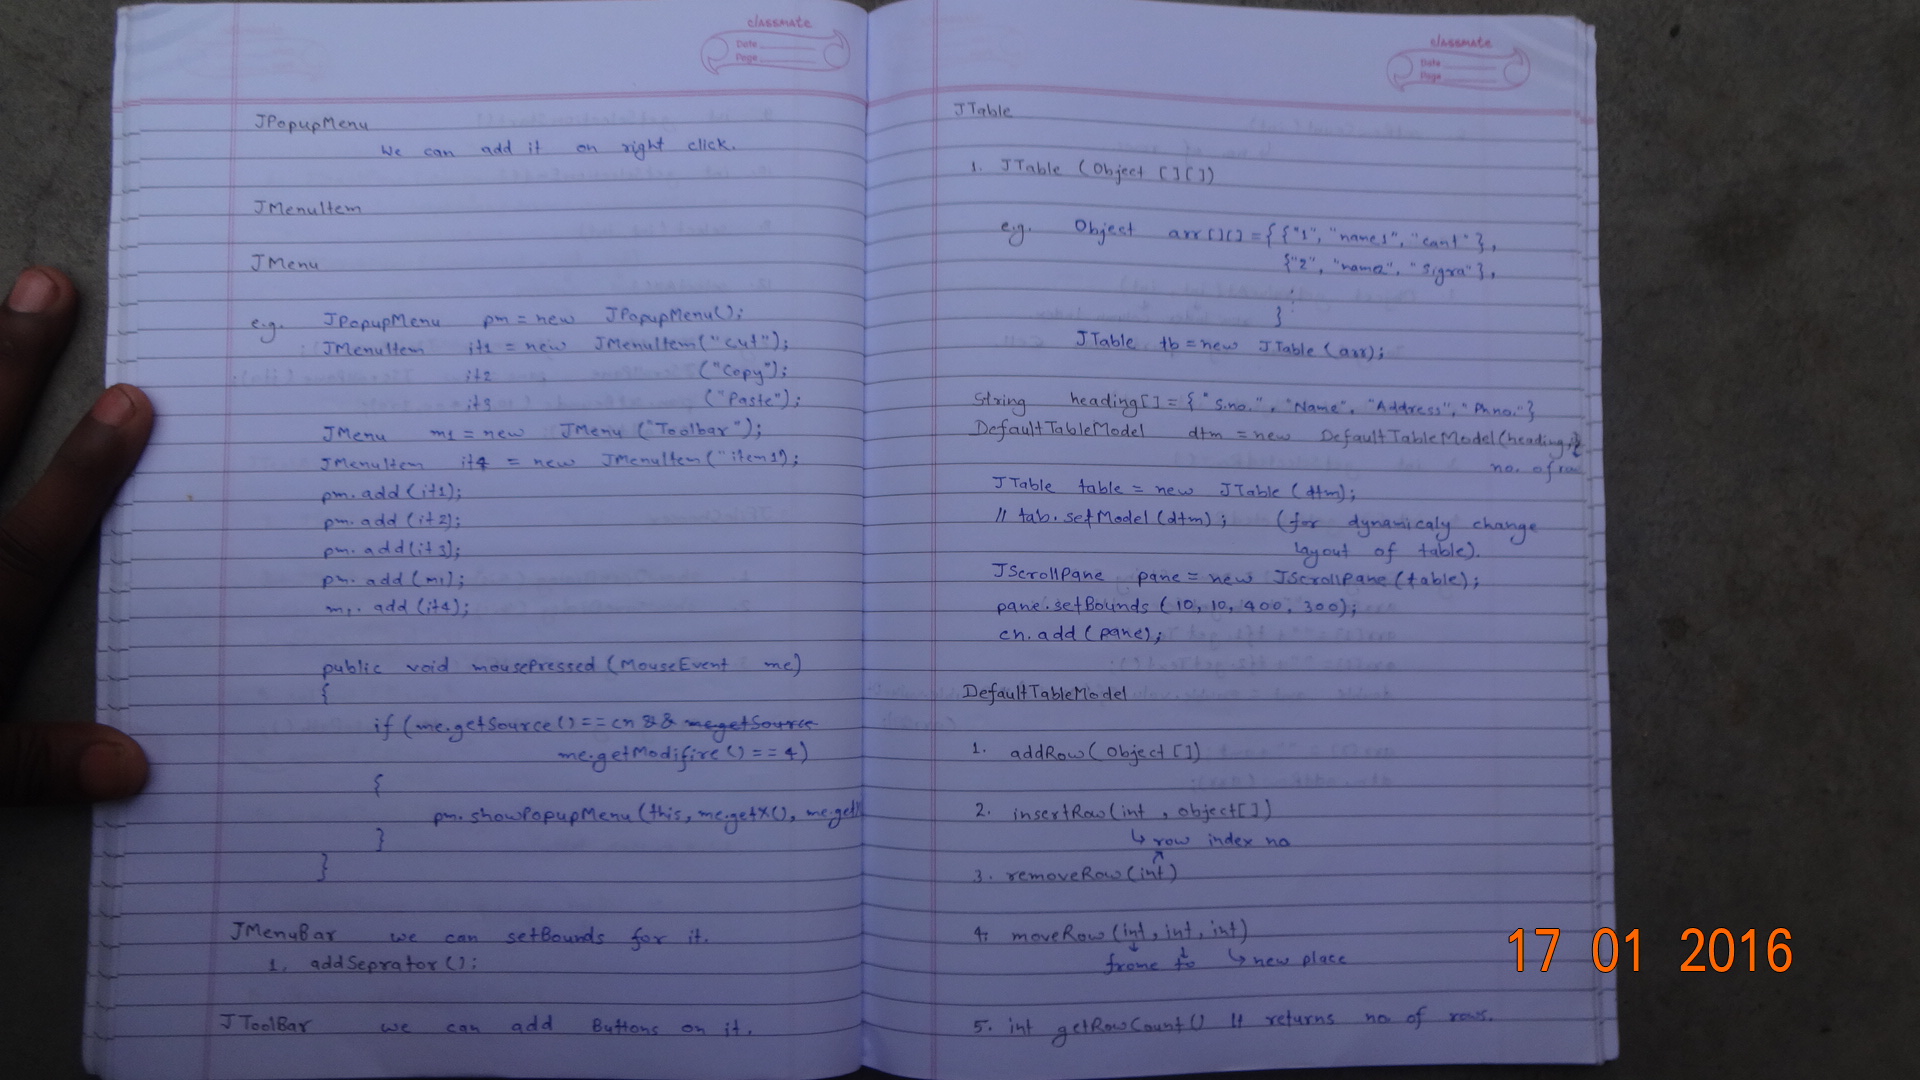 classmate
Date
Page
JPopupMenu
We can add it on right click.
JMenuItem
JMenu
e.g. JPopupMenu pm = new JPopupMenu();
JMenuItem it1 = new JMenuItem("cut");
it2 ("Copy");
it3 ("Paste");
JMenu m1 = new JMenu ("Toolbar");
JMenuItem it4 = new JMenuItem("item1");
pm.add(it1);
pm.add(it2);
pm.add(it3);
pm.add(m1);
m1.add(it4);
public void mousePressed (MouseEvent me)
{
if (me.getSource()==cn && me.getSource
me.getModifire()==4)
{
pm.showPopupMenu(this, me.getX(), me.get
}
}
JMenuBar we can setBounds for it.
1. addSeprator();
JToolBar we can add Buttons on it.
classmate
Date
Page
JTable
1. JTable (Object [][])
e.g. Object arr[][]={{"1", "name1", "cant"},
{"2", "name2", "Sigra"},
:
}
JTable tb=new JTable(arr);
String heading[]={"S.no.", "Name", "Address", "Ph.no."}
DefaultTableModel dtm = new DefaultTableModel(heading,
no. of
JTable table = new JTable (dtm);
// tab.setModel(dtm); (for dynamicaly change
layout of table).
JScrollPane pane = new JScrollPane(table);
pane.setBounds (10, 10, 400, 300);
cn.add(pane);
DefaultTableModel
1. addRow(Object[])
2. insertRow(int , object[])
↳ row index no
3. removeRow(int)
4. moveRow(int, int, int)
frome to ↳ new place
5. int getRowCount() // returns no of rows.
17 01 2016